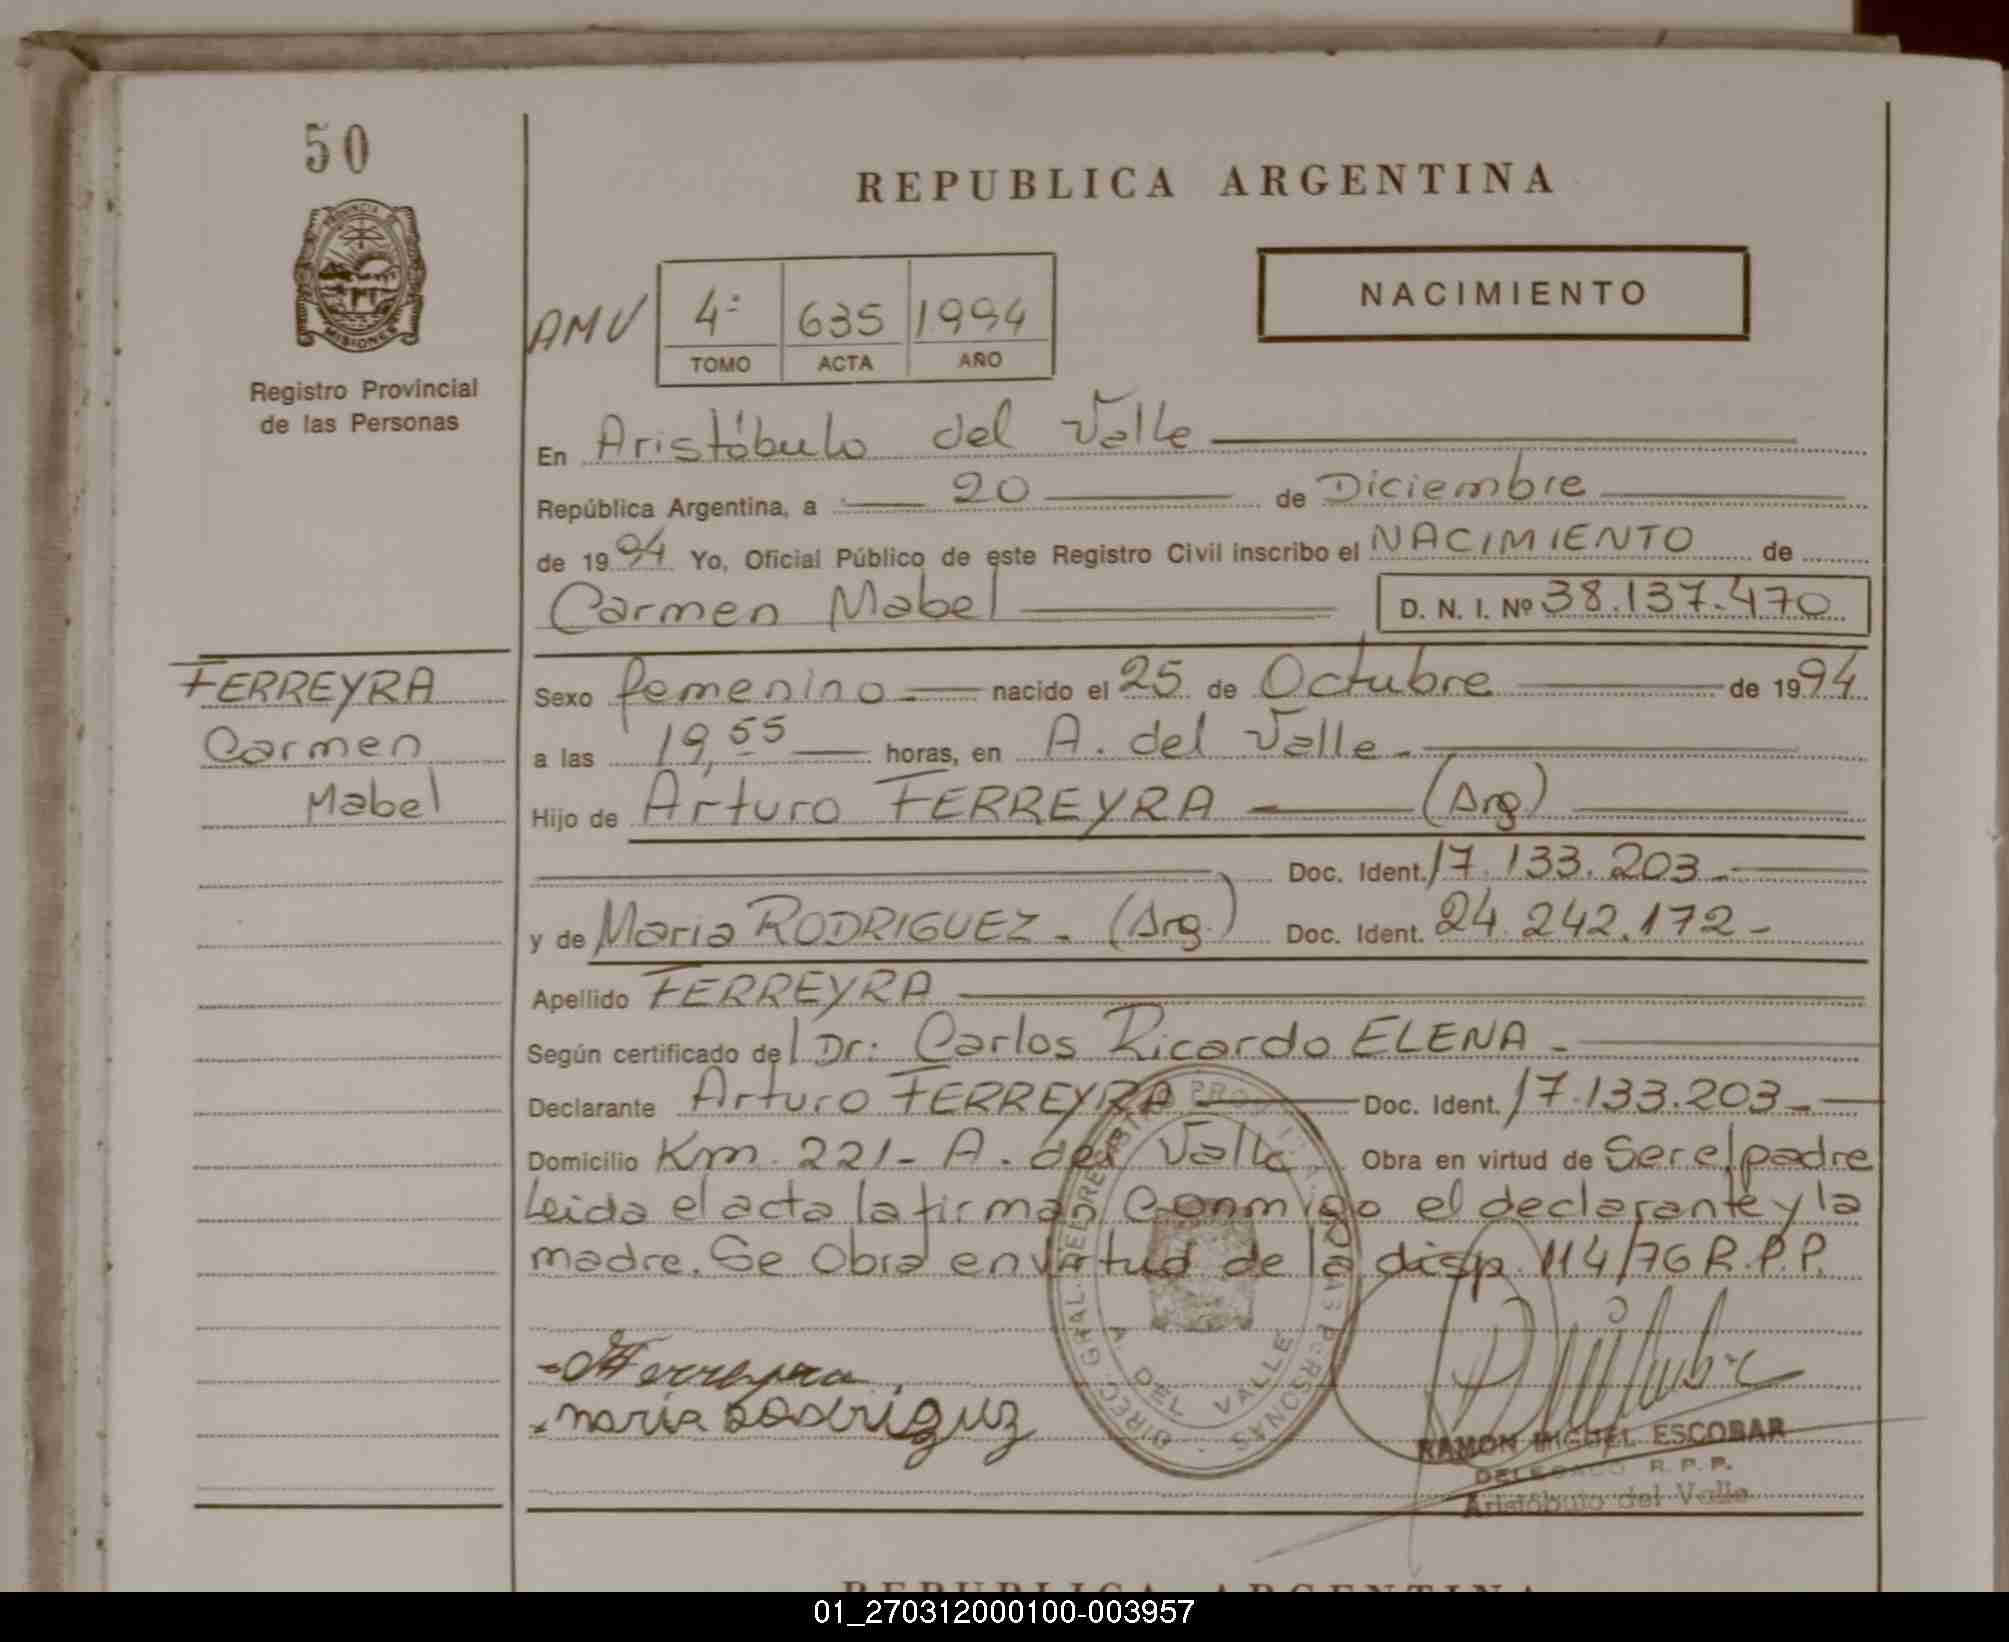 50
REPUBLICA ARGENTINA
PROVINCIA DE
MISIONES
NACIMIENTO
AMV 4ª 635 1994
TOMO ACTA AÑO
Registro Provincial
de las Personas
En Aristóbulo del Valle
República Argentina, a 20 de Diciembre
de 1994 Yo, Oficial Público de este Registro Civil inscribo el NACIMIENTO de
Carmen Mabel D. N. I. Nº 38.137.470
FERREYRA
Carmen
Mabel
Sexo femenino nacido el 25 de Octubre de 1994
a las 19,55 horas, en A. del Valle
Hijo de Arturo FERREYRA (Arg)
Doc. Ident. 17.133.203
y de Maria RODRIGUEZ. (Arg.) Doc. Ident. 24.242.172
Apellido FERREYRA
Según certificado del Dr. Carlos Ricardo ELENA
Declarante Arturo FERREYRA Doc. Ident. 17.133.203
Domicilio Km. 221 - A. del Valle Obra en virtud de Ser el padre
Leida el acta la firman conmigo el declarante y la
madre. Se Obra en virtud de la disp. 114/76 R.P.P.
Ferreyra
maria Rodriguz
A. DEL VALLE
RAMON MIGUEL ESCOBAR
DELEGADO R. P. P.
Aristóbulo del Valle
REPUBLICA ARGENTINA
01_270312000100-003957